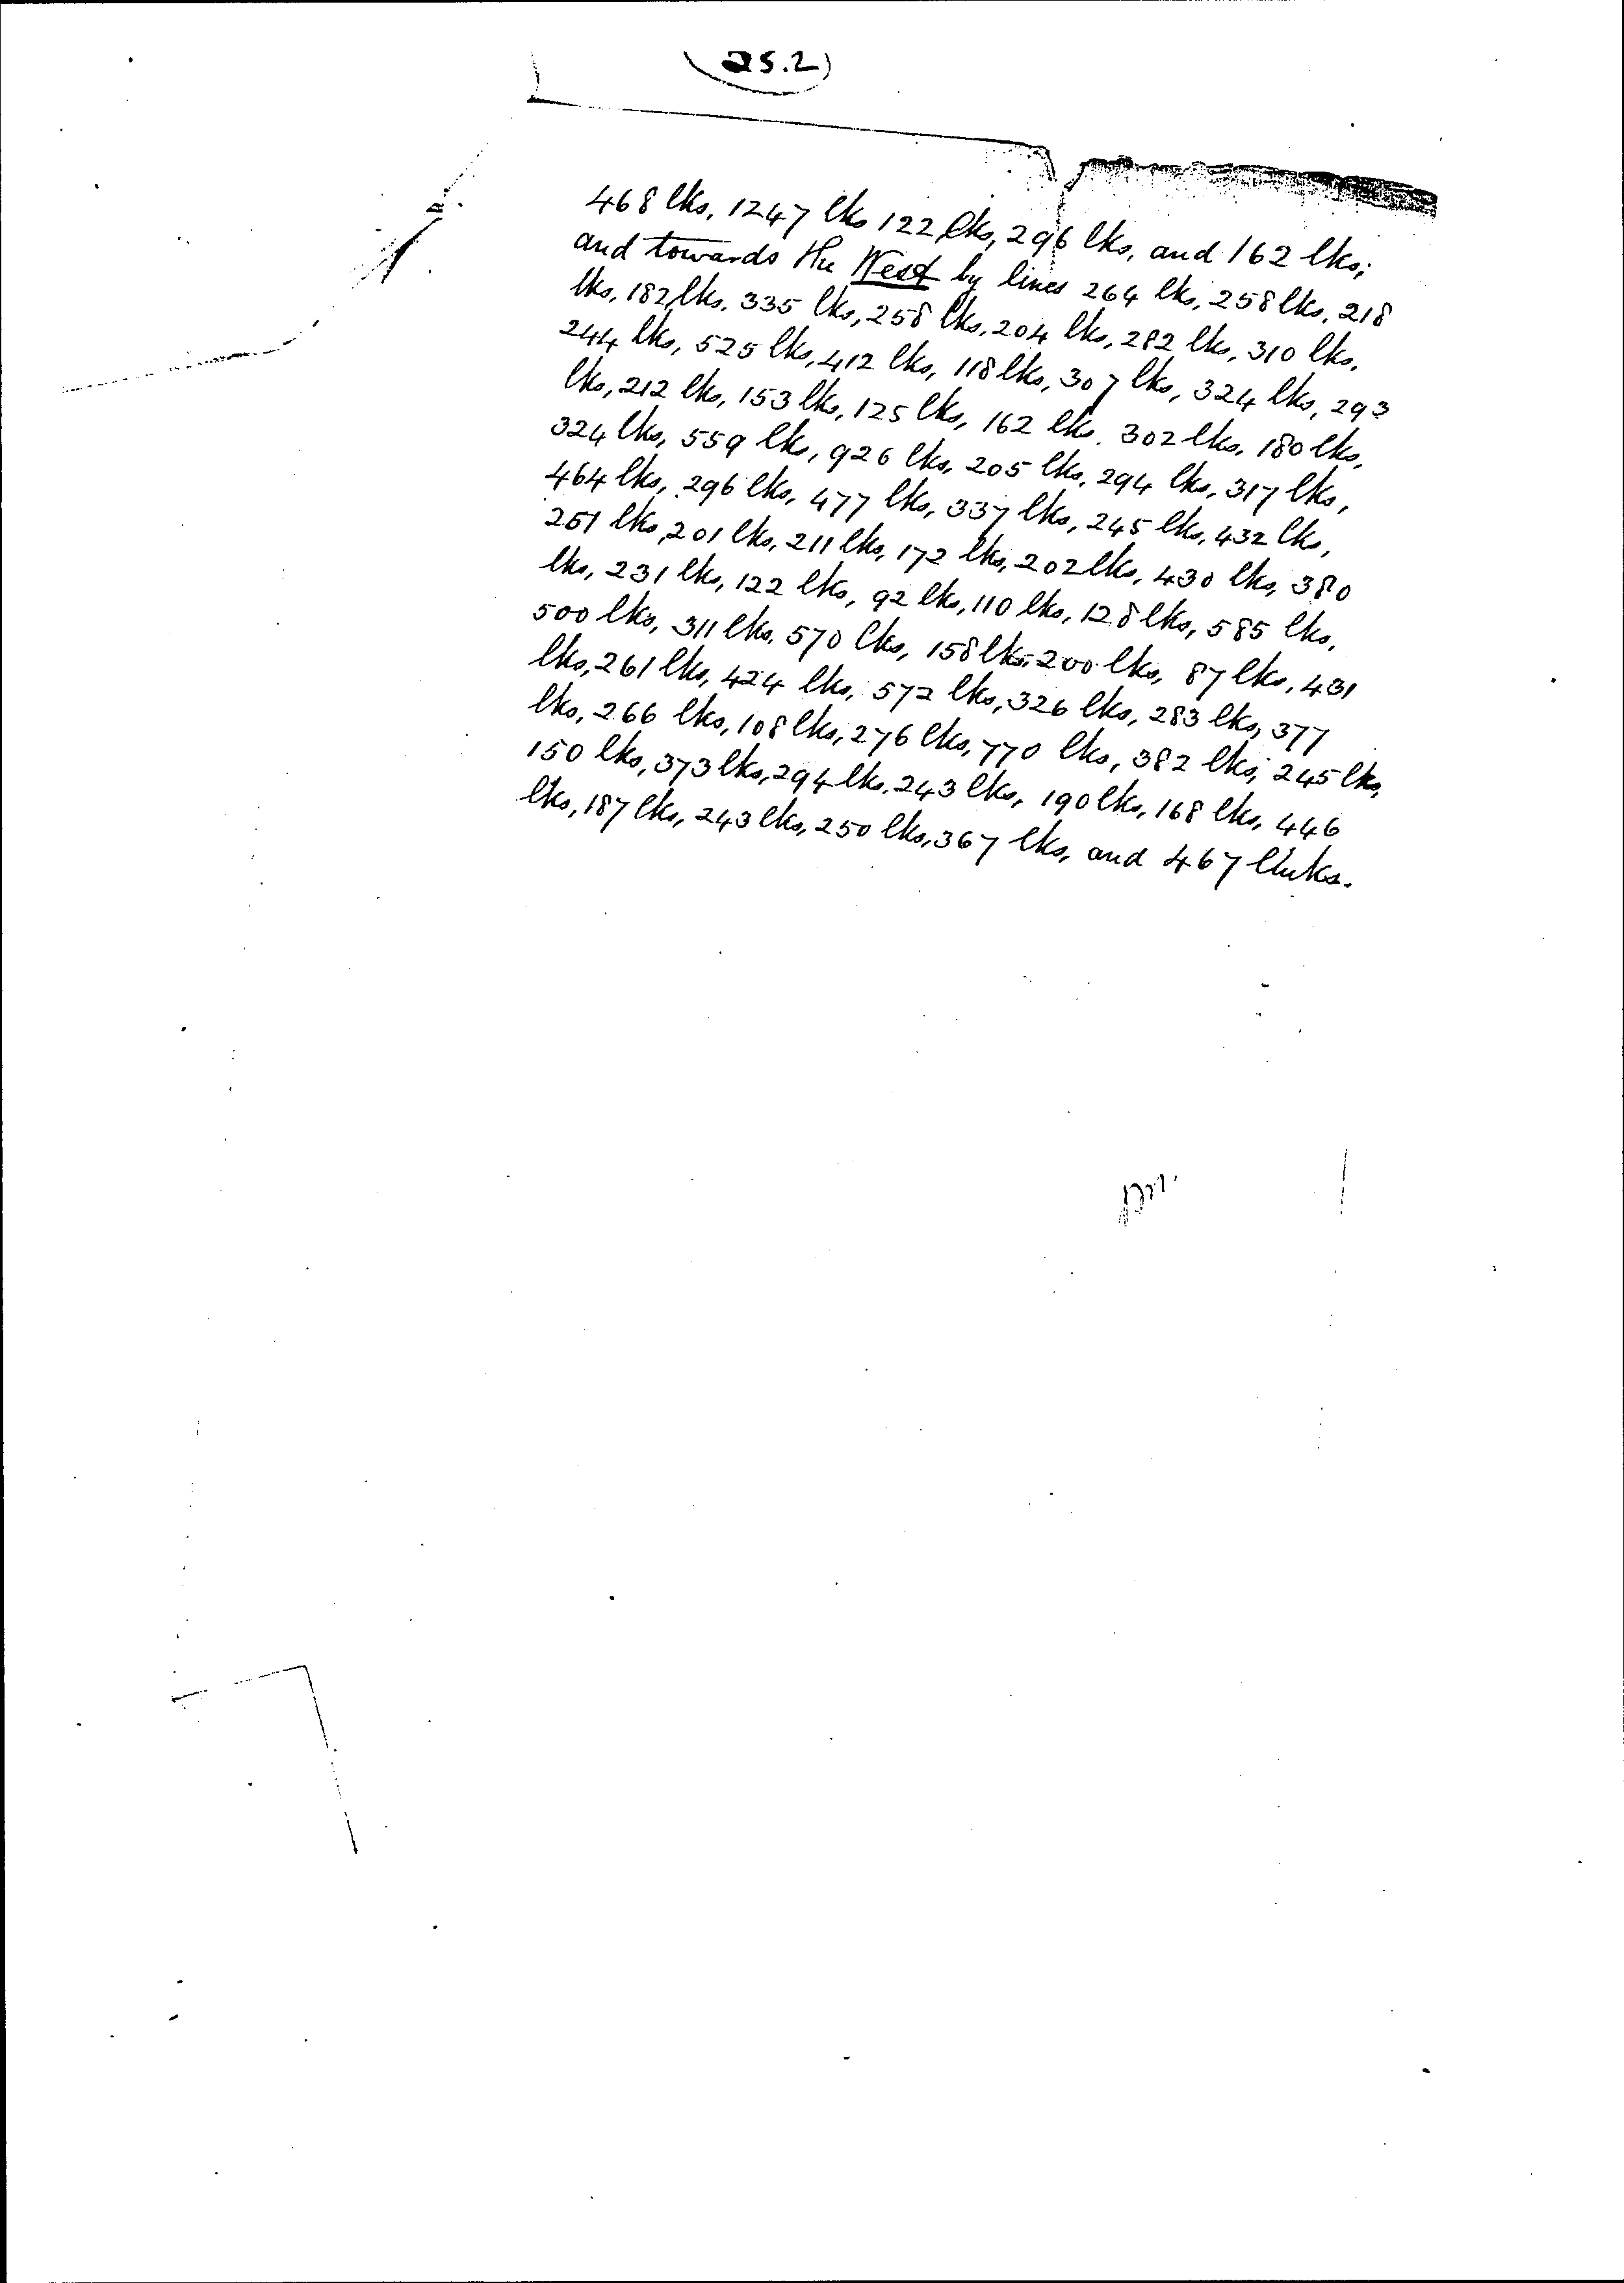 (25.2)
468 lks, 1247 lks 122 lks, 296 lks, and 162 lks;
and towards the West by lines 264 lks, 258 lks, 218
lks, 182 lks, 335 lks, 258 lks, 204 lks, 282 lks, 310 lks,
244 lks, 525 lks, 412 lks, 118 lks, 307 lks, 324 lks, 293
lks, 212 lks, 153 lks, 125 lks, 162 lks, 302 lks, 180 lks,
324 lks, 559 lks, 926 lks, 205 lks, 294 lks, 317 lks,
464 lks, 296 lks, 477 lks, 337 lks, 245 lks, 432 lks,
251 lks, 201 lks, 211 lks, 172 lks, 202 lks, 430 lks, 380
lks, 231 lks, 122 lks, 92 lks, 110 lks, 128 lks, 585 lks,
500 lks, 311 lks, 570 lks, 158 lks, 200 lks, 87 lks, 431
lks, 261 lks, 424 lks, 572 lks, 326 lks, 283 lks, 377
lks, 266 lks, 108 lks, 276 lks, 770 lks, 382 lks, 245 lks,
150 lks, 373 lks, 294 lks, 243 lks, 190 lks, 168 lks, 446
lks, 187 lks, 243 lks, 250 lks, 367 lks, and 467 links.